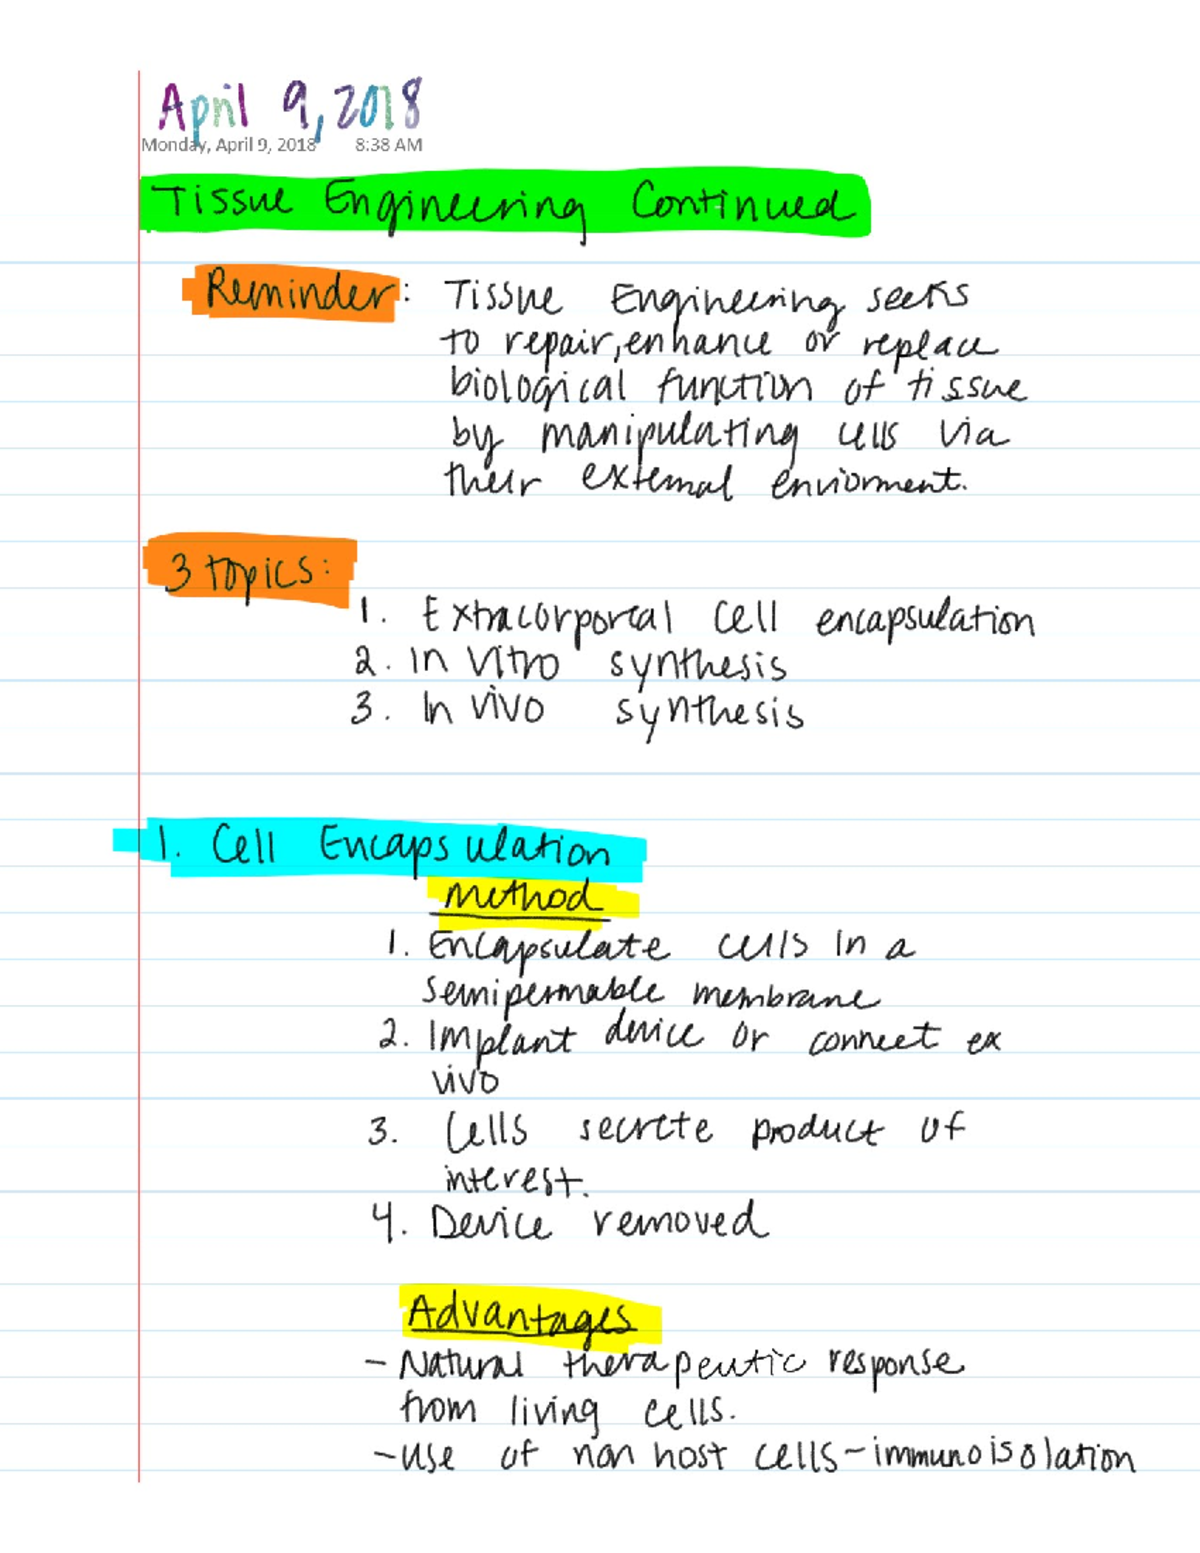 April 9, 2018
Monday, April 9, 2018 8:38 AM
Tissue Engineering Continued
Reminder: Tissue Engineering seeks
to repair, enhance or replace
biological function of tissue
by manipulating cells via
their external enviorment.
3 topics:
1. Extracorporeal cell encapsulation
2. In vitro synthesis
3. In vivo synthesis
1. Cell Encapsulation
Method
1. Encapsulate cells in a
semipermable membrane
2. Implant device or connect ex
vivo
3. Cells secrete product of
interest.
4. Device removed
Advantages
- Natural therapeutic response
from living cells.
- use of non host cells - immunoisolation